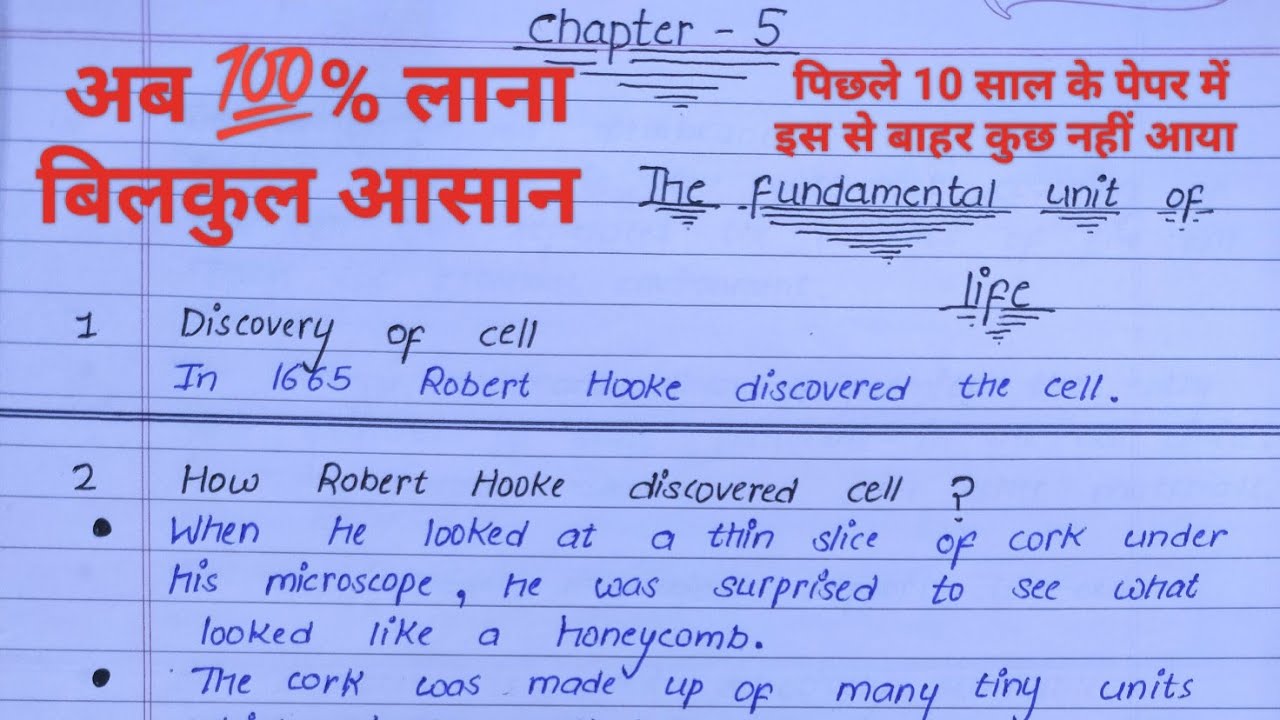 Chapter - 5
अब 💯% लाना
बिलकुल आसान
पिछले 10 साल के पेपर में
इस से बाहर कुछ नहीं आया
The Fundamental unit of
life
1 Discovery of cell
In 1665 Robert Hooke discovered the cell.
2 How Robert Hooke discovered cell ?
• When he looked at a thin slice of cork under
his microscope, he was surprised to see what
looked like a honeycomb.
• The cork was made up of many tiny units